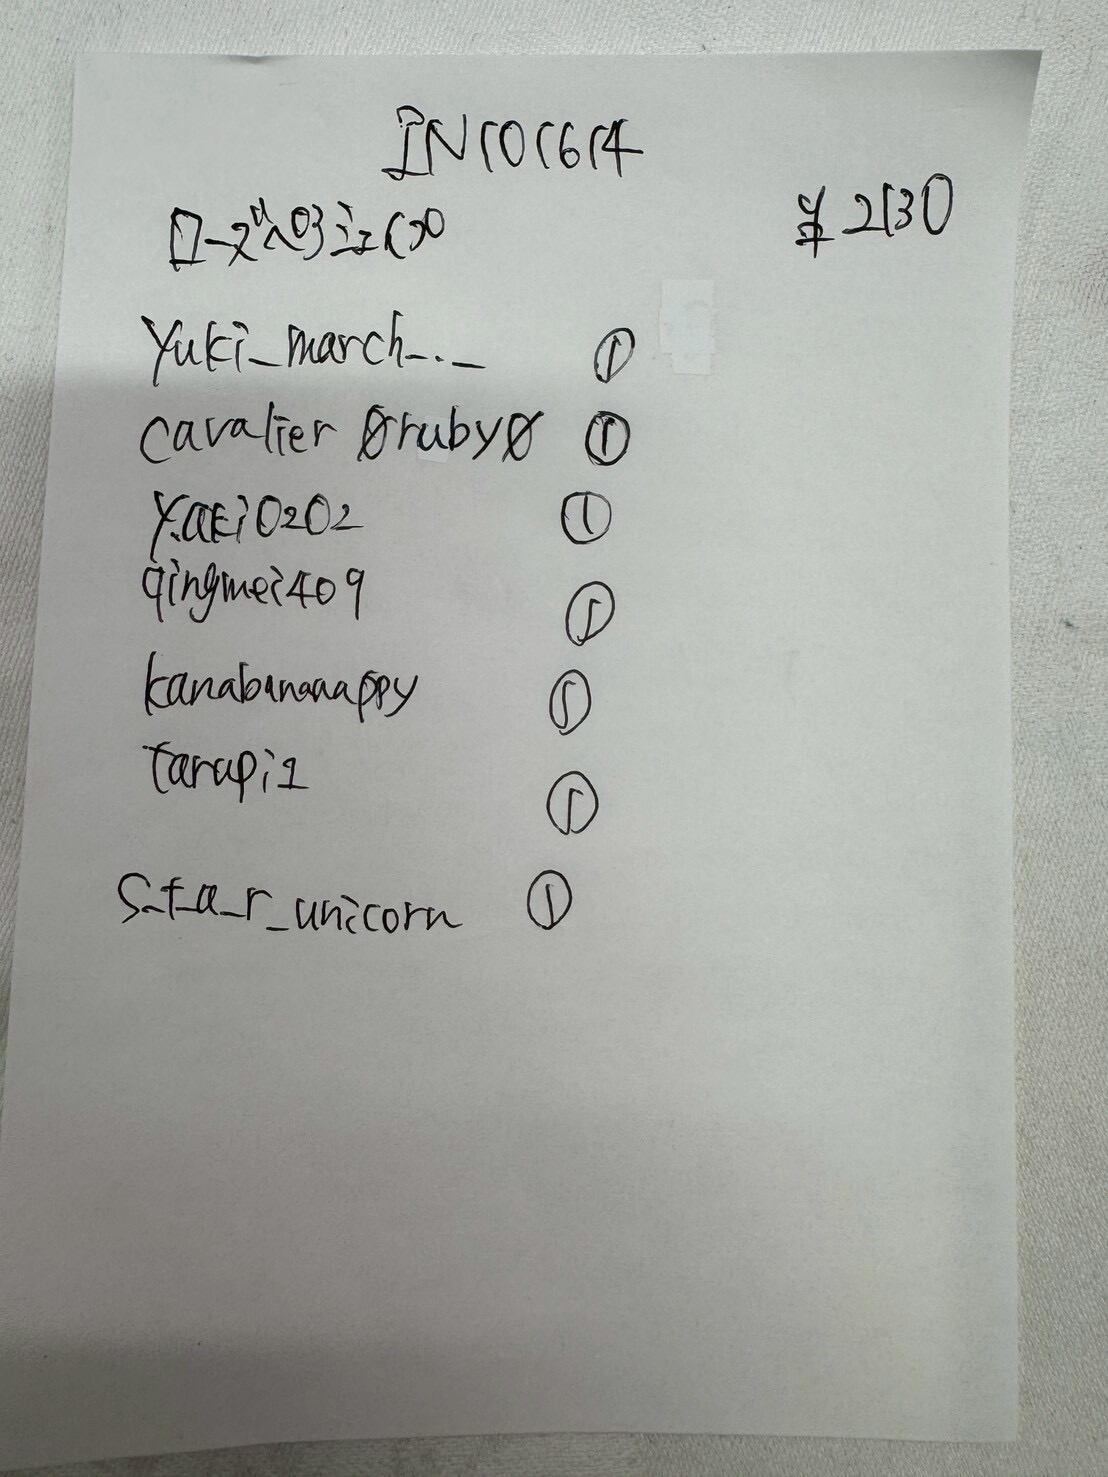 IN101614
¥2130
yuki_march_._ ①
cavalier 0ruby0 ①
y.aki0202 ①
qingmei409 ①
kanabanaaappy ①
tarupi1 ①
s_t_a_r_unicorn ①